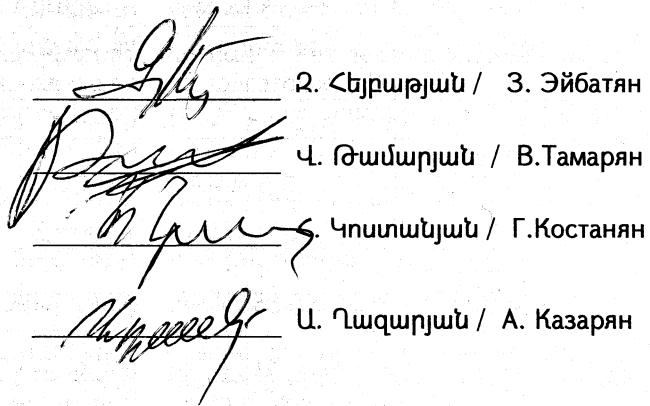 Զ. Հեյբաթյան / З. Эйбатян
Վ. Թամարյան / В.Тамарян
Կոստանյան / Г.Костанян
Ա. Ղազարյան / А. Казарян